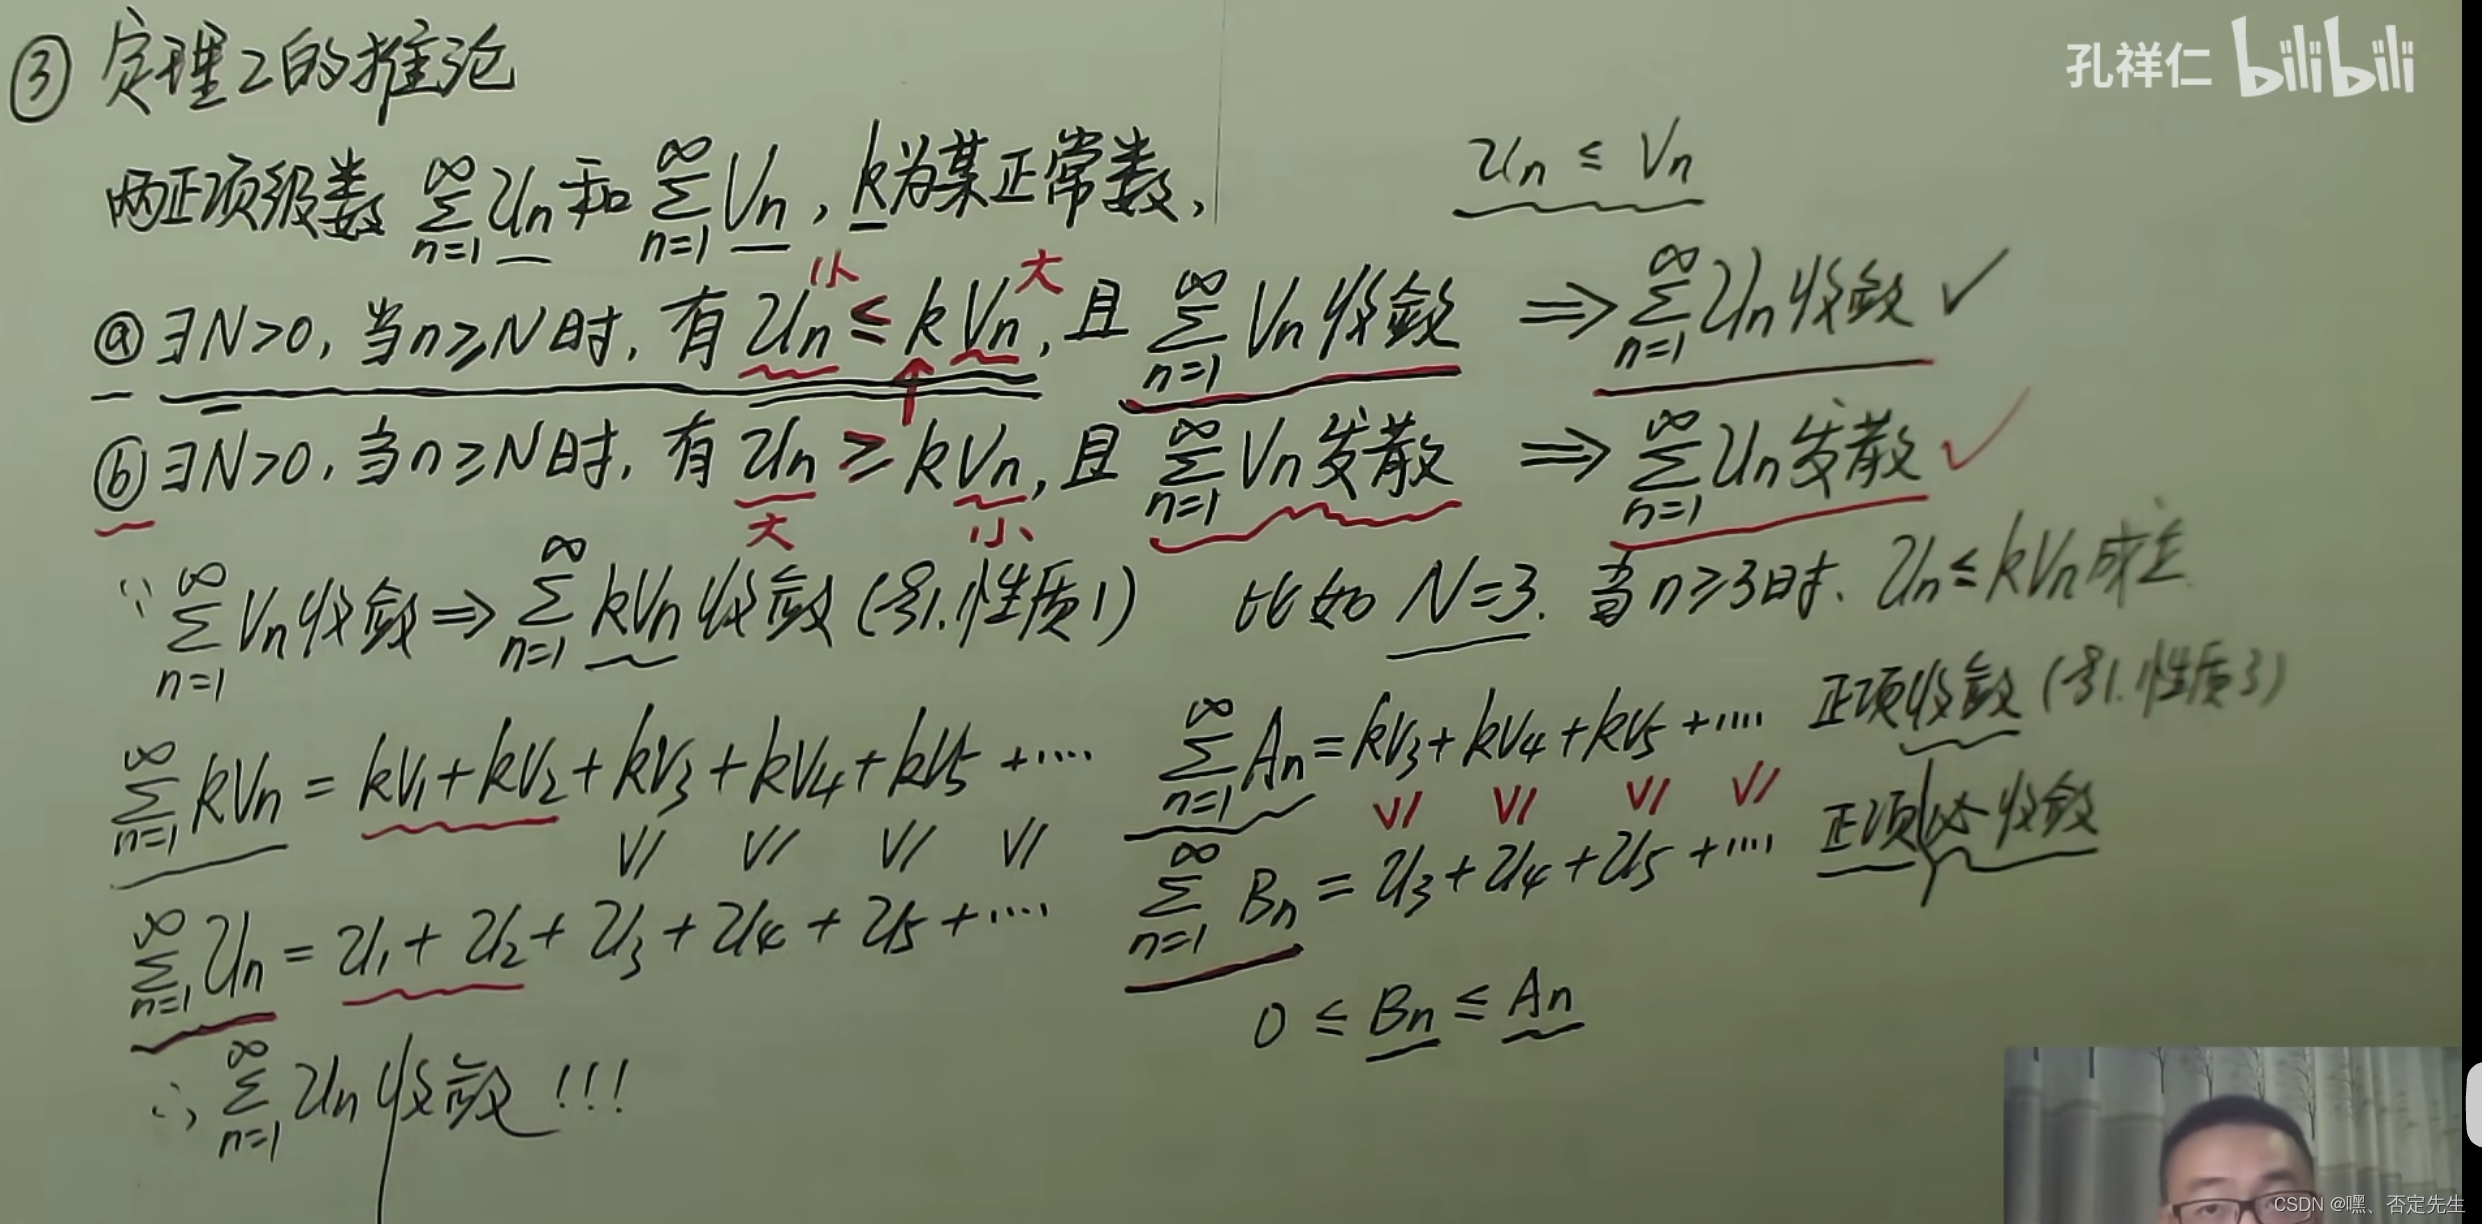 ③ 定理2的推论
孔祥仁 bilibili
两正项级数 ∞∑n=1 Un 和 ∞∑n=1 Vn, k为某正常数,
Un ≤ Vn
小 大
ⓐ ∃N>0, 当n≥N时, 有 Un ≤ kVn, 且 ∞∑n=1 Vn收敛 ⇒ ∞∑n=1 Un收敛 ✓
ⓑ ∃N>0, 当n≥N时, 有 Un ≥ kVn, 且 ∞∑n=1 Vn发散 ⇒ ∞∑n=1 Un发散 ✓
大 小
∵ ∞∑n=1 Vn收敛 ⇒ ∞∑n=1 kVn收敛 (号1.性质1)
比如 N=3. 当n≥3时. Un ≤ kVn成立.
∞∑n=1 kVn = kV1 + kV2 + kV3 + kV4 + kV5 + ....
∨/ ∨/ ∨/ ∨/
∞∑n=1 Un = U1 + U2 + U3 + U4 + U5 + ....
∴ ∞∑n=1 Un收敛!!!
∞∑n=1 An = kV3 + kV4 + kV5 + .... 正项收敛 (号1.性质3)
∨/ ∨/ ∨/ ∨/
∞∑n=1 Bn = U3 + U4 + U5 + .... 正项 必收敛
0 ≤ Bn ≤ An
CSDN @嘿、否定先生